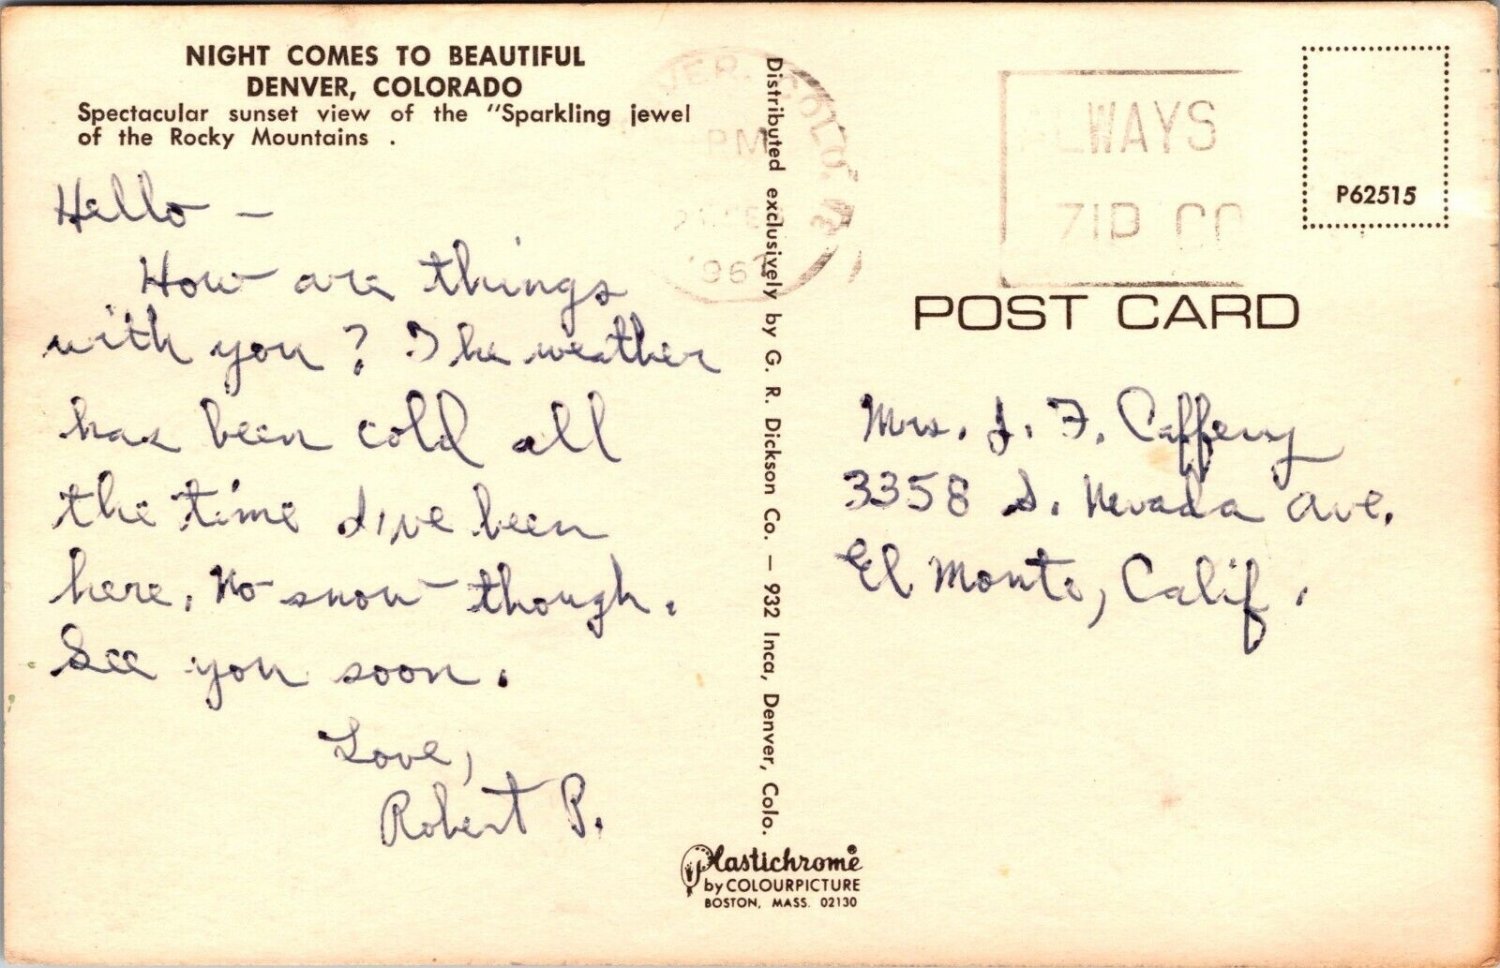 NIGHT COMES TO BEAUTIFUL
DENVER, COLORADO
Spectacular sunset view of the "Sparkling jewel
of the Rocky Mountains .
Hello -
How are things
with you? The weather
has been cold all
the time I've been
here. No snow though.
See you soon.
Love,
Robert P.
Distributed exclusively by G. R. Dickson Co. — 932 Inca, Denver, Colo.
Plastichrome®
by COLOURPICTURE
BOSTON, MASS. 02130
VER. COLO.
PM
196
LWAYS
ZIP CO
P62515
POST CARD
Mrs. J. F. Caffery
3358 S. Nevada Ave.
El Monte, Calif.